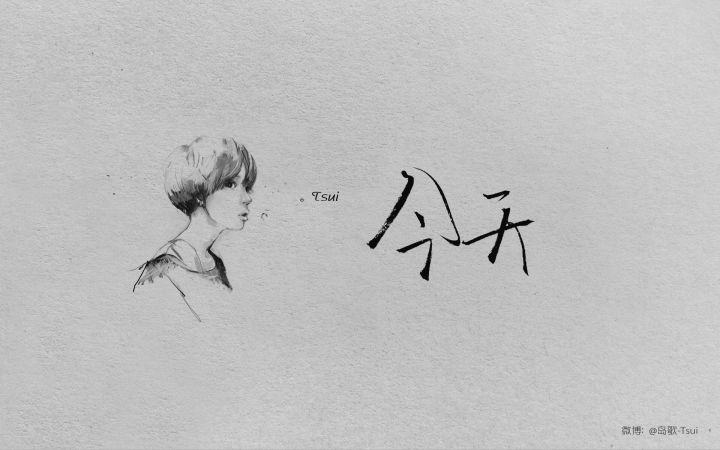 Tsui
今天
微博: @岛歌-Tsui